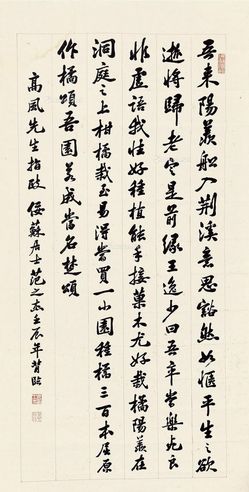 吾来陽羨船入荆溪意思豁然如惬平生之欲
逝將歸老定是前緣王逸少曰吾卒當樂死良
非虛語我性好種植能手接菓木尤好栽橘陽羨在
洞庭之上柑橘栽至易得當買一小園種橘三百本屈原
作橘頌吾園若成當名楚頌
高風先生指政 佞蘇居士范之杰壬辰年背臨